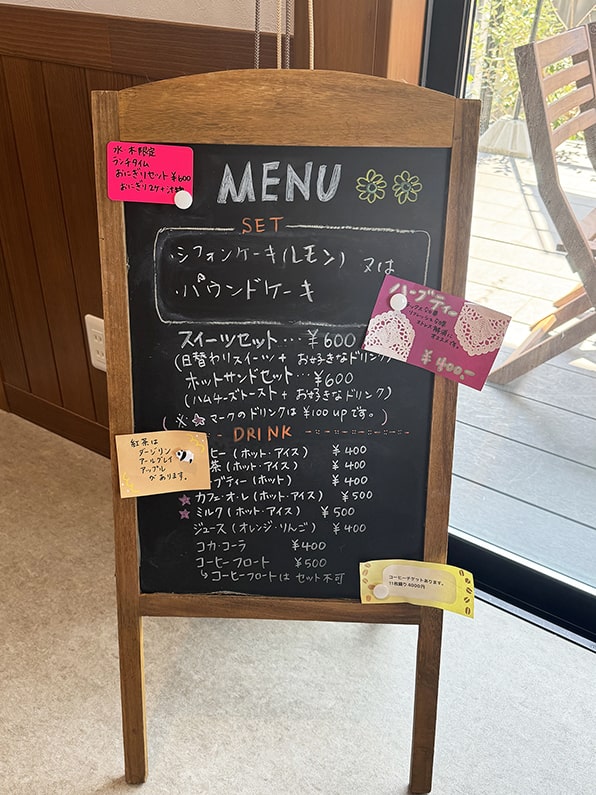 水 木限定
ランチタイム
おにぎりセット ¥600
おにぎり2ケ+汁物
MENU
SET
・シフォンケーキ(レモン) 又は
・パウンドケーキ
スイーツセット・・・¥600
(日替わりスイーツ+ お好きなドリンク)
ホットサンドセット・・・¥600
(ハムチーズトースト+ お好きなドリンク)
(※☆マークのドリンクは ¥100 upです。)
ハーブティー
¥400.-
DRINK
紅茶は
ダージリン
アールグレイ
アップル
があります。
ヒー (ホット・アイス) ¥400
茶 (ホット・アイス) ¥400
ブティー (ホット) ¥400
★カフェ・オ・レ (ホット・アイス) ¥500
★ミルク (ホット・アイス) ¥500
ジュース (オレンジ・りんご) ¥400
コカ・コーラ ¥400
コーヒーフロート ¥500
↳コーヒーフロートは セット不可
コーヒーチケットあります。
11枚綴り4000円